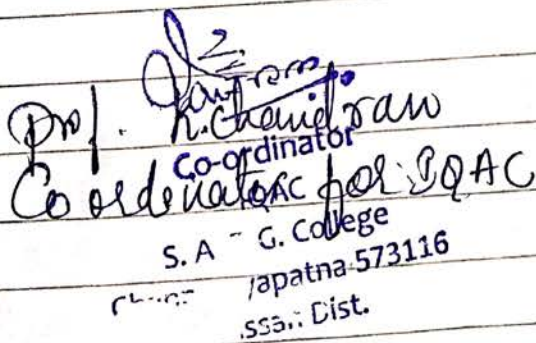 Prof. K. Chandran
Co-ordinator
Coordinator for IQAC
IQAC
S. A G. College
apatna-573116
Dist.